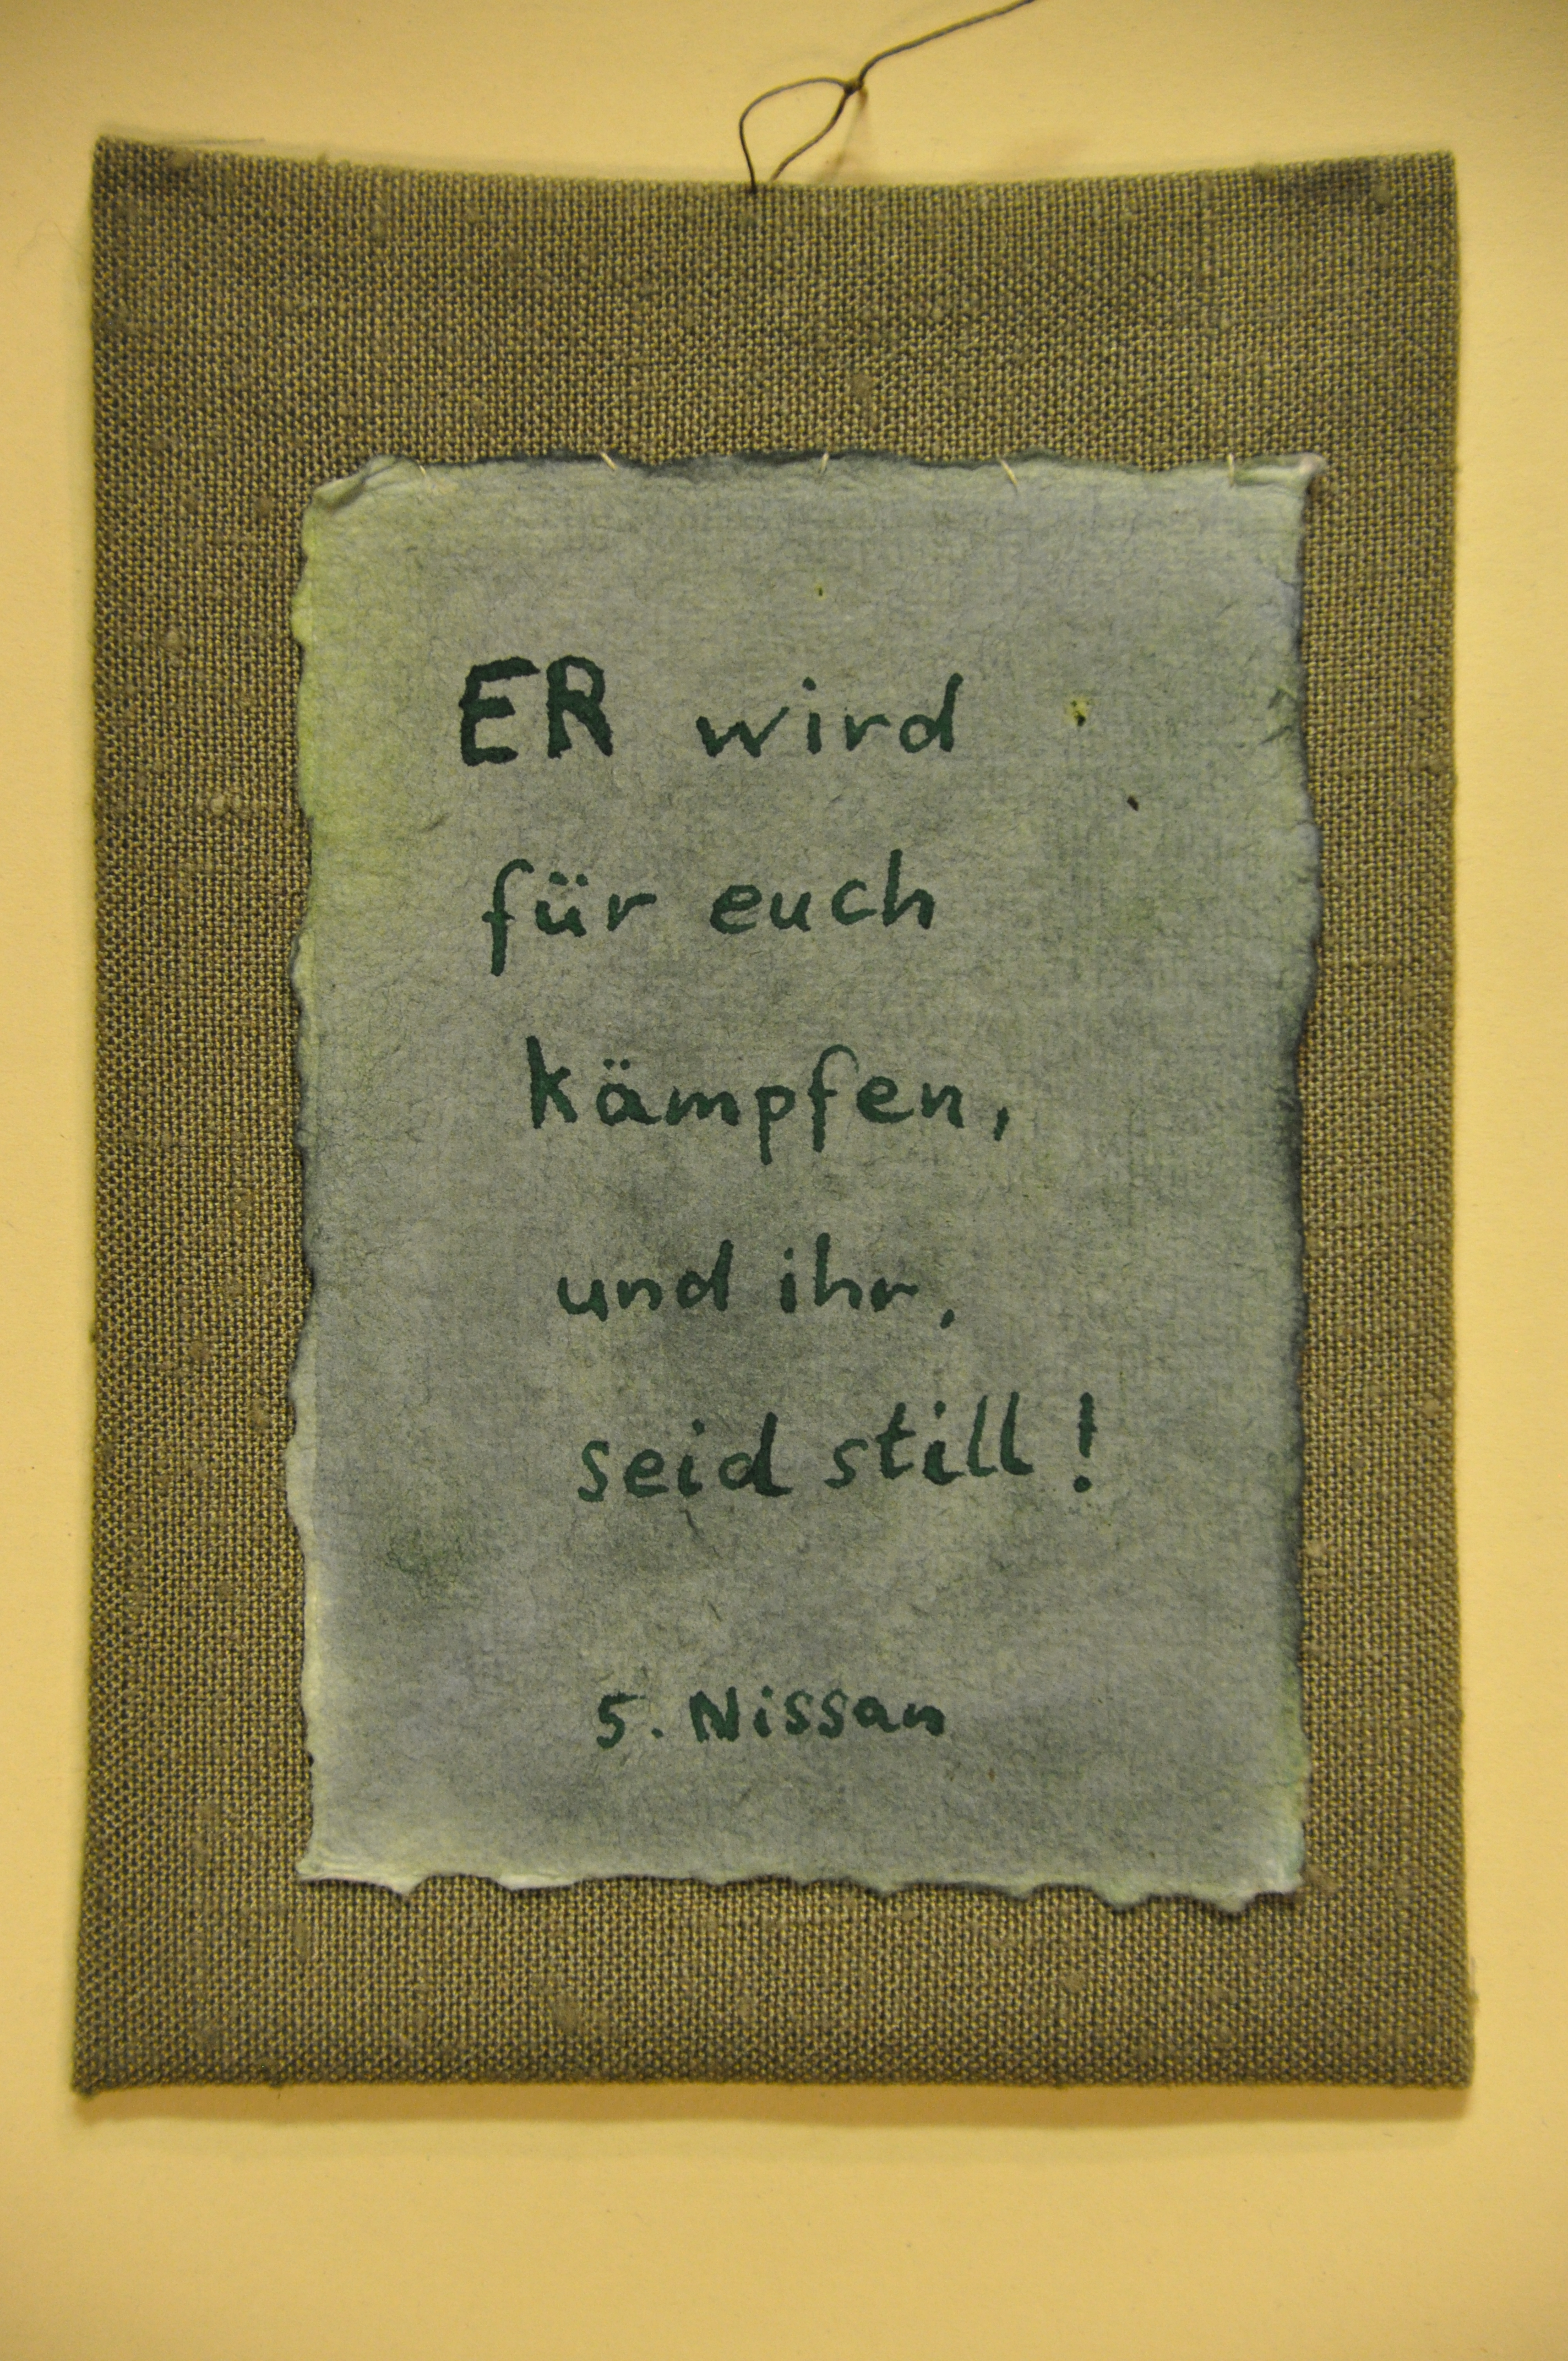 ER wird
für euch
kämpfen,
und ihr,
seid still!
5. Nissan